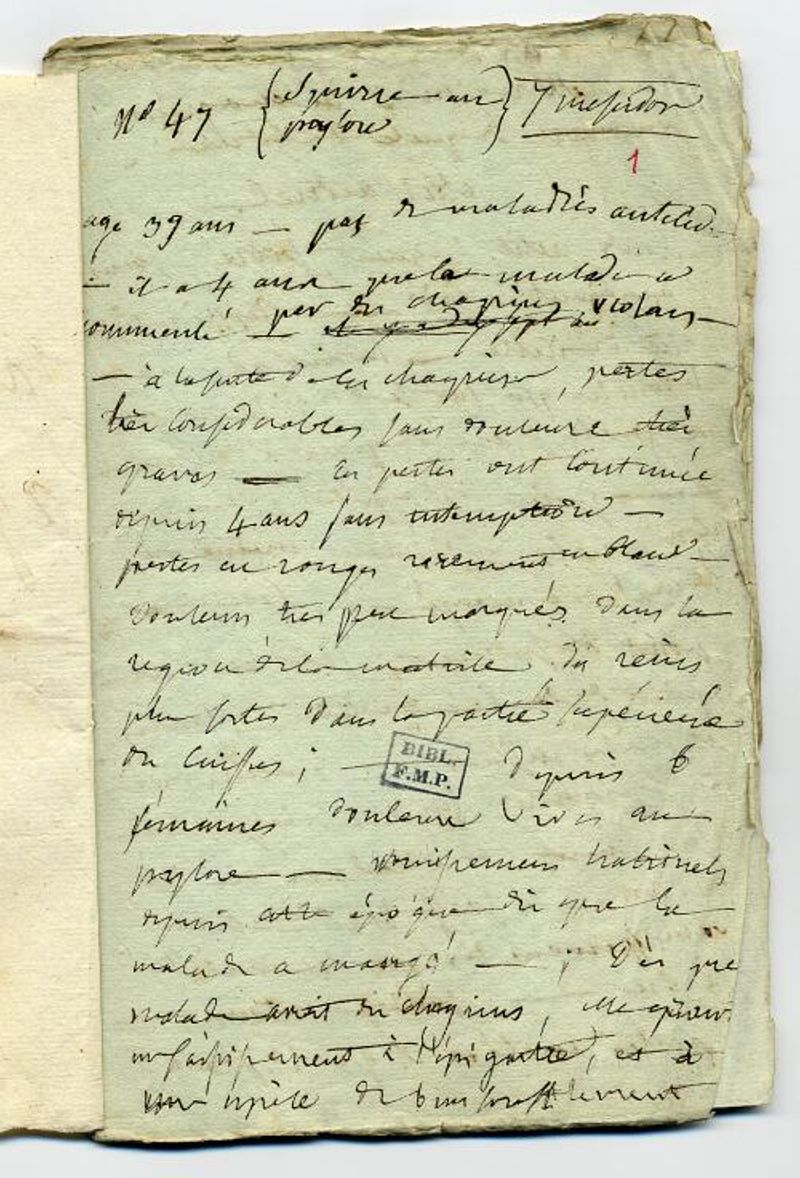 N° 47 { Squirre au } 7 
pylore
1
age 39 ans — pas de maladies anteced.
— il a 4 ans que la maladie a
commencé par des chagrins violans —
— à la suite de ces chagrins, pertes
très considerables sans douleurs très
graves — ces pertes ont continué
depuis 4 ans sans interruption —
pertes en rouges rarement en blanc —
douleurs très peu marqués dans la
region de la matrice des reins
plus fortes dans la partie superieure
des cuisses ; — depuis 6
BIBL.
F.M.P.
semaines douleurs vives au
pylore — vomissemens
depuis cette époque dès que la
malade a mangé — ; Dès que
malade avoit des chagrins, elle
à l'épigastre, et à
une espèce de boursoufflement